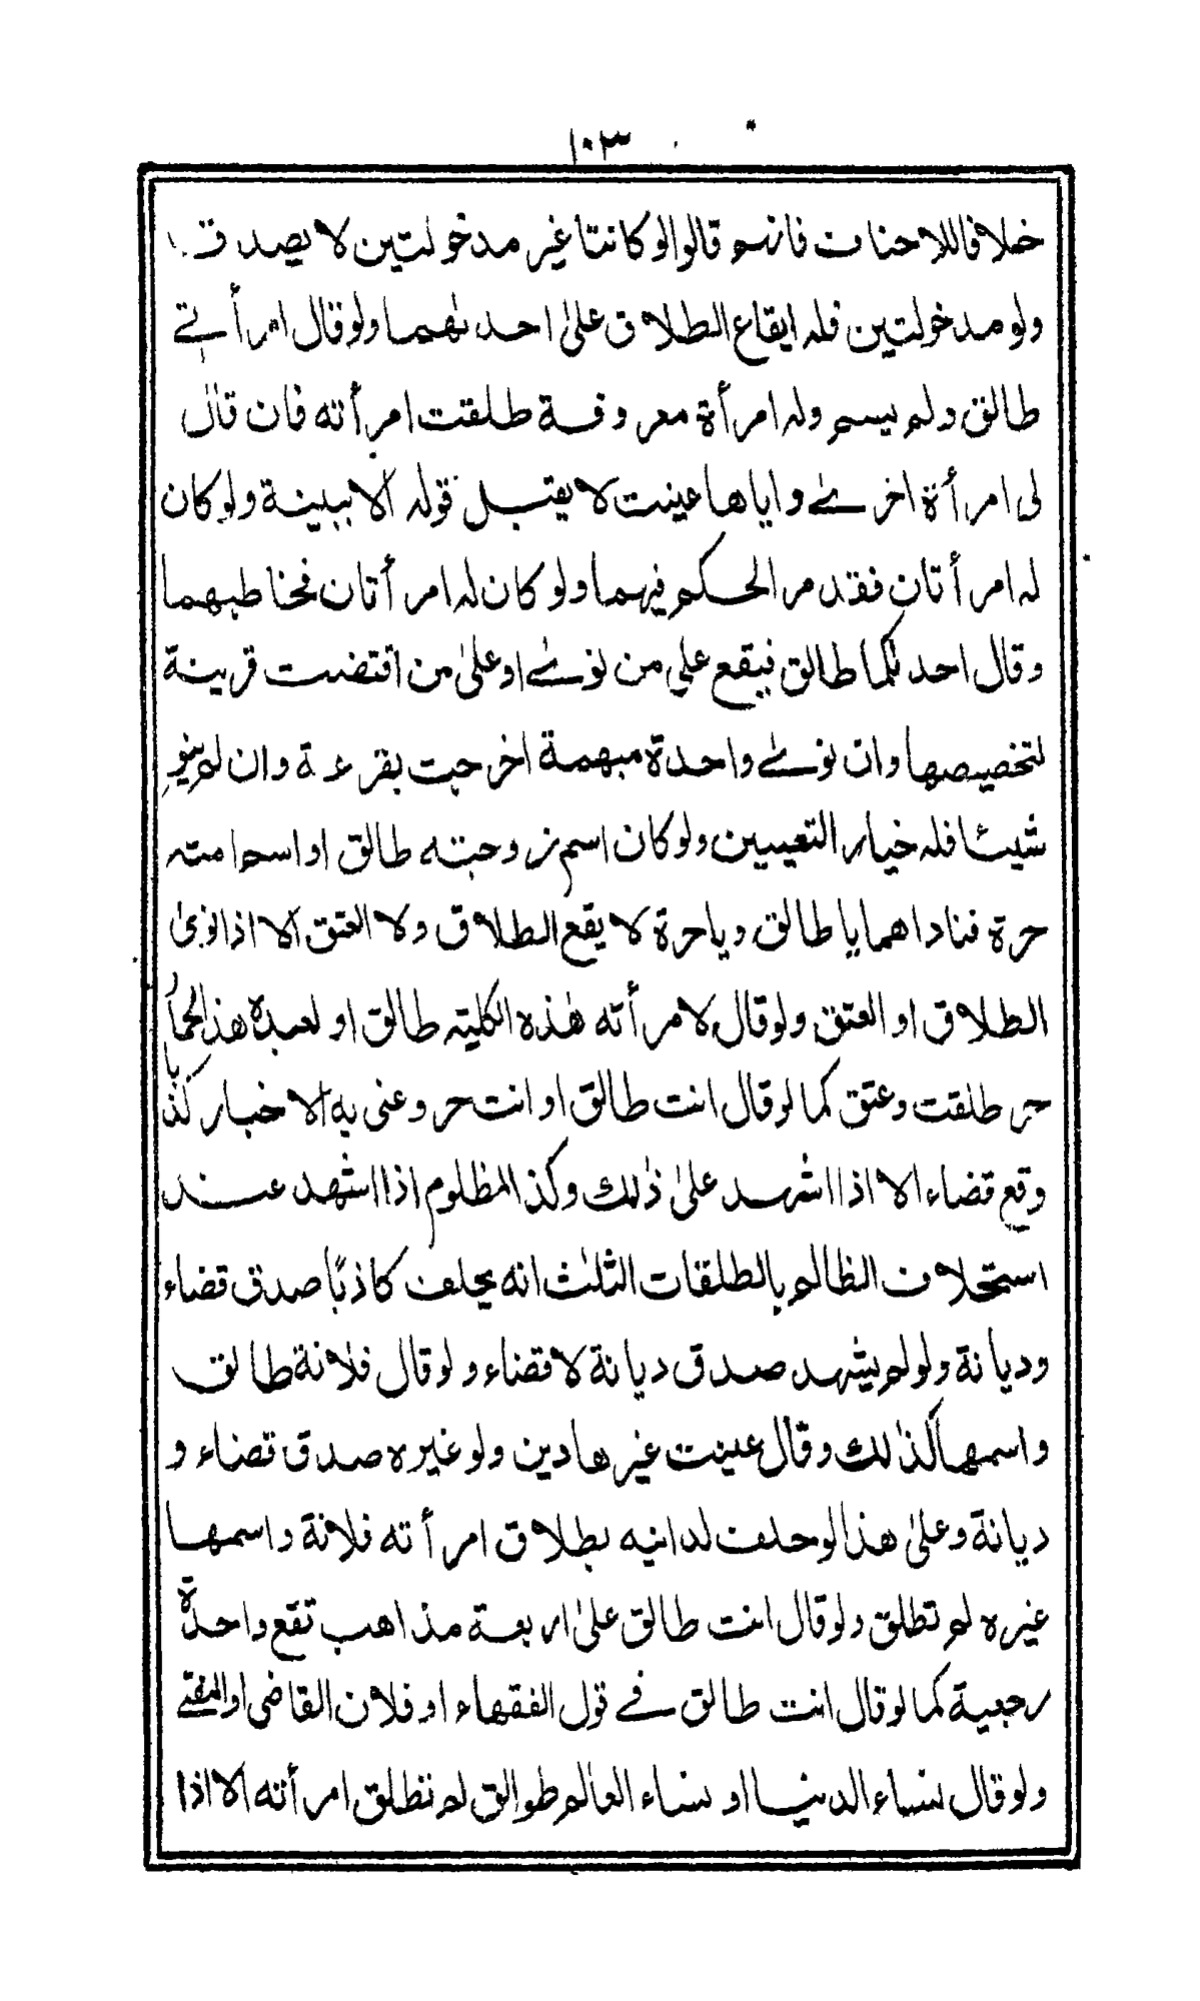 ١٠٣
خلافا للاحناف فانهم قالوا لو كانتا غير مدخولتين لا يصدق
ولو مدخولتين فله ايقاع الطلاق علىٰ احدىٰهما ولو قال امرأتے
طالق ولم يسم وله امرأة معروفة طلقت امرأته فان قال
لى امرأة اخرىٰے واياها عينت لا يقبل قوله الا ببينة ولو كان
له امرأتان فقد مر الحكم فيهما ولو كان له امرأتان فخاطبهما
وقال احدٰىكما طالق فيقع على من نوىٰے او علىٰ من اقتضت قرينة
لتخصيصها وان نوىٰے واحدة مبهمة اخرجت بقرعة وان لم ينوِ
شيئا فله خيار التعيين ولو كان اسم زوجته طالق او اسم امته
حرة فناداهما يا طالق ويا حرة لا يقع الطلاق ولا العتق الا اذا نوىٰ
الطلاق او العتق ولو قال لامرأته هٰذه الكلبة طالق او لعبده هذا الحمار
حر طلقت وعتق كما لو قال انت طالق او انت حر وعنى به الاخبار كذبا
وقع قضاء الا اذا اشهد علىٰ ذٰلك وكذا المظلوم اذا اشهد عند
استحلاف الظالم بالطلقات الثلٰث انه يحلف كاذبًا صدق قضاء
وديانة ولو لم يشهد صدق ديانة لا قضاء ولو قال فلانة طالق
واسمها كذٰلك وقال عينت غيرها دين ولو غيره صدق قضاء و
ديانة وعلىٰ هذا لو حلف لدائنه بطلاق امرأته فلانة واسمها
غيره لم تطلق ولو قال انت طالق علىٰ اربعة مذاهب تقع واحدة
رجعية كما لو قال انت طالق فے قول الفقهاء او فلان القاضى او المفتے
ولو قال نساء الدنيا او نساء العالم طوالق لم تطلق امرأته الا اذا